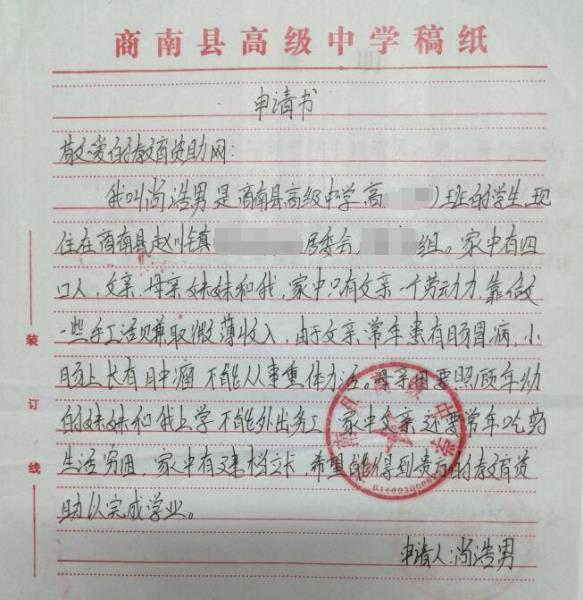 商南县高级中学稿纸
申请书
敬爱的教育资助网:
我叫尚浩男是商南县高级中学高 )班的学生,现
住在商南县赵川镇 居委会, 组。家中有四
口人,父亲、母亲妹妹和我,家中只有父亲一个劳动力,靠做
一些手工活赚取微薄收入,由于父亲常年患有肠胃病,小
肠上长有肿瘤不能从事重体力活。母亲因要照顾年幼
的妹妹和我上学不能外出务工,家中父亲还要常年吃药
生活穷困,家中有建档立卡,希望能得到贵方的教育资
助以完成学业。
申请人:尚浩男
装
订
线